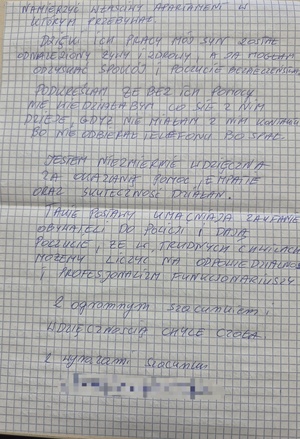 NAMIERZYĆ WŁAŚCIWY APARTAMENT W
KTÓRYM PRZEBYWAŁ.
DZIĘKI ICH PRACY MÓJ SYN ZOSTAŁ
ODNALEZIONY ŻYWY I ZDROWY, A JA MOGŁAM
ODZYSKAĆ SPOKÓJ I POCZUCIE BEZPIECZEŃSTWA
PODKREŚLAM ŻE BEZ ICH POMOCY
NIE WIEDZIAŁABYM CO SIĘ Z NIM
DZIEJE, GDYŻ NIE MIAŁAM Z NIM KONTAKTU
BO NIE ODBIERAŁ TELEFONU BO SPAŁ.
JESTEM NIEZMIERNIE WDZIĘCZNA
ZA OKAZANĄ POMOC, EMPATIE
ORAZ SKUTECZNOŚĆ DZIAŁAŃ.
TAKIE POSTAWY UMACNIAJĄ ZAUFANIE
OBYWATELI DO POLICJI I DAJĄ
POCZUCIE, ŻE W TRUDNYCH CHWILACH
MOŻEMY LICZYĆ NA ODPOWIEDZIALNOŚĆ
I PROFESJONALIZM FUNKCJONARIUSZY
Z ogromnym szacunkiem i
WDZIĘCZNOŚCIĄ CHYLĘ CZOŁA
Z wyrazami szacunku